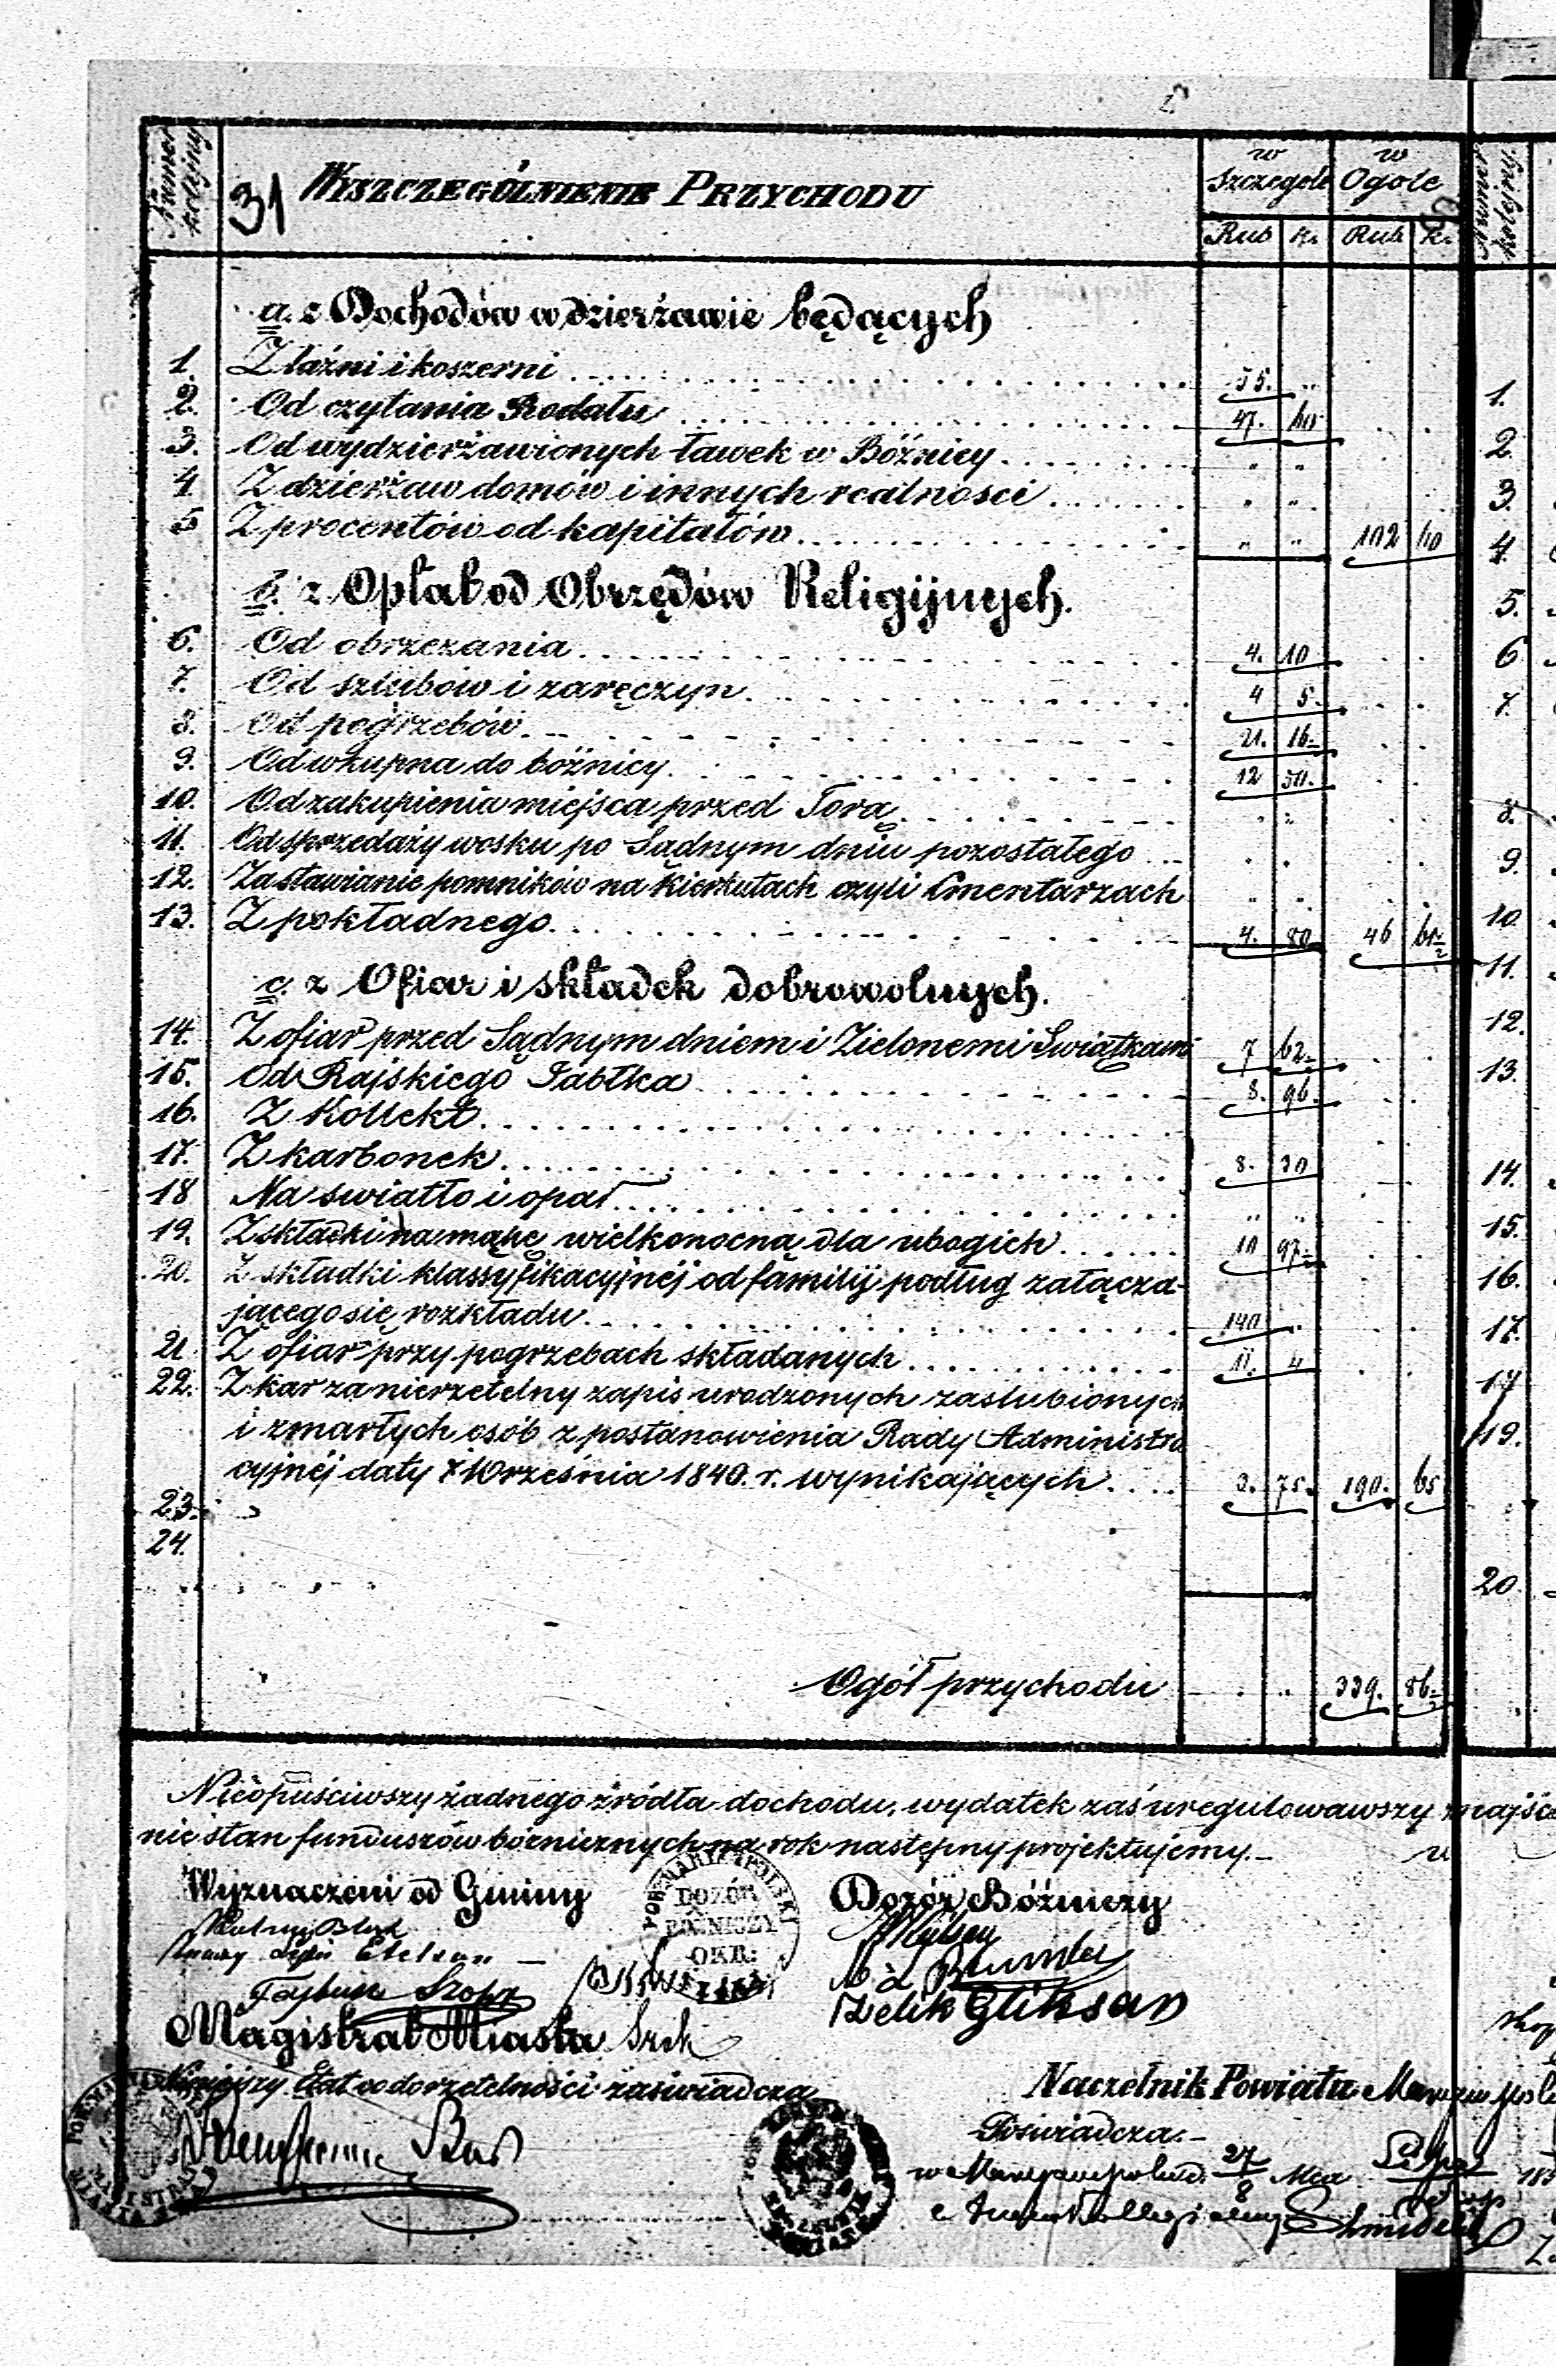 Numer kolejny
31 WYSZCZEGÓLNIENIE PRZYCHODU
w Szczegole
w Ogole
Rub k. Rub k.
Numer kolejny
a. z Dochodów w dzierżawie będących
1. Z łaźni i koszerni 55. „
2. Od czytania Rodału 47. 60
3. Od wydzierżawionych ławek w Bóźnicy „ „
4. Z dzierżaw domów i innych realności „ „
5 Z procentów od kapitałów „ „ 102 60
b. z Opłat od Obrzędów Religijnych.
6. Od obrzezania 4. 10
7. Od szlubów i zaręczyn 4 5.
8. Od pogrzebów 21. 16
9. Od wkupna do bóżnicy 12 50.
10. Od zakupienia miejsca przed Torą
11. Od sprzedaży wosku po Sądnym dniu pozostałego
12. Za stawianie pomników na Kierkutach czyli Cmentarzach „ „
13. Z pokładnego 4. 80 46 61
c. z Ofiar i składek dobrowolnych.
14. Z ofiar przed Sądnym dniem i Zielonemi Swiątkami 7 62
15. Od Rajskiego Jabłka 8. 96
16. Z Kollekt
17. Z karbonek 8. 30
18 Na swiatło i opał „ „
19. Z składki na mąkę wielkonocną dla ubogich 10 97
20. Z składki klassyfikacyjnéj od familij podług załącza-
jącego się rozkładu 140
21 Z ofiar przy pogrzebach składanych 11. 4
22. Z kar za nierzetelny zapis urodzonych zaslubionych
i zmarłych osób z postanowienia Rady Administra
cyjnéj daty 7 Września 1840. r. wynikających 3. 75. 190. 65
23.
24.
Ogół przychodu 339. 86
Nieopuściwszy żadnego źródła dochodu, wydatek zaś uregulowawszy
nie stan funduszów bóżnicznych na rok następny projektujemy.
Wyznaczeni od Gminy
DOZÓR BÓŻNICZY OKR:
Dozór Bóźniczy
Zelik Gliksan
Magistrat Miasta
Niniejszy Etat co do rzetelności zaświadcza
Naczelnik Powiatu
Poświadcza.
27
8
1.
2.
3.
4.
5.
6
7.
8.
9.
10.
11.
12.
13.
14.
15.
16.
17.
17
19.
20.